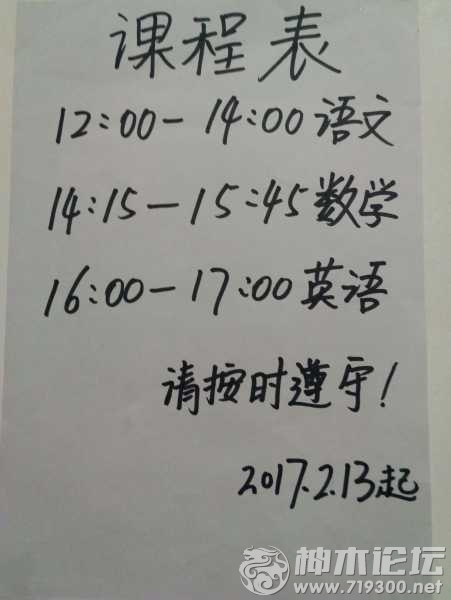 课程表
12:00-14:00 语文
14:15-15:45 数学
16:00-17:00 英语
请按时遵守!
2017.2.13起
神木论坛
www.719300.net